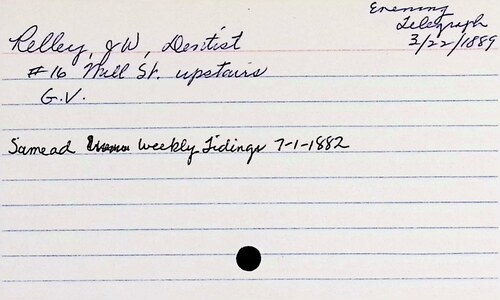 Evening
Telegraph
3/22/1889
Kelley, J W, Dentist
#16 Mill St. upstairs
G.V.
Same ad Weekly Tidings 7-1-1882